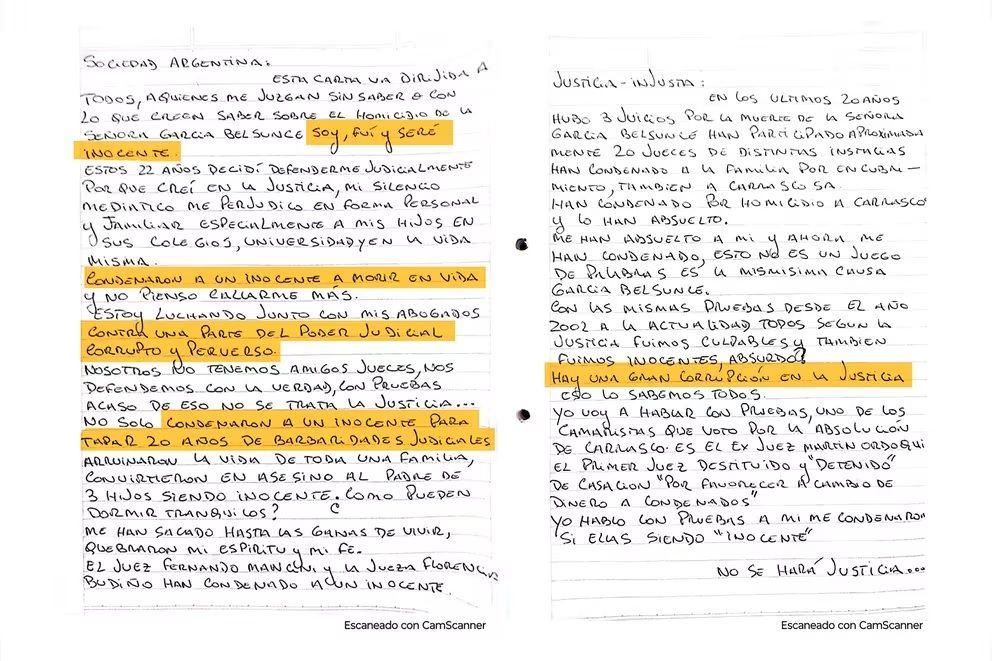 SOCIEDAD ARGENTINA:
ESTA CARTA VA DIRIJIDA A
TODOS, AQUIENES ME JUZGAN SIN SABER O CON
LO QUE CREEN SABER SOBRE EL HOMICIDIO DE LA
SEÑORA GARCIA BELSUNCE SOY, FUÍ Y SERÉ
INOCENTE.
ESTOS 22 AÑOS DECIDÍ DEFENDERME JUDICIALMENTE
POR QUE CREÍ EN LA JUSTICIA, MI SILENCIO
MEDIATICO ME PERJUDICO EN FORMA PERSONAL
Y FAMILIAR ESPECIALMENTE A MIS HIJOS EN
SUS COLEGIOS, UNIVERSIDAD Y EN LA VIDA
MISMA.
CONDENARON A UN INOCENTE A MORIR EN VIDA
Y NO PIENSO CALLARME MÁS.
ESTOY LUCHANDO JUNTO CON MIS ABOGADOS
CONTRA UNA PARTE DEL PODER JUDICIAL
CORRUPTO Y PERVERSO.
NOSOTROS NO TENEMOS AMIGOS JUECES, NOS
DEFENDEMOS CON LA VERDAD, CON PRUEBAS
ACASO DE ESO NO SE TRATA LA JUSTICIA...
NO SOLO CONDENARON A UN INOCENTE PARA
TAPAR 20 AÑOS DE BARBARIDADES JUDICIALES
ARRUINARON LA VIDA DE TODA UNA FAMILIA,
CONVIRTIERON EN ASESINO AL PADRE DE
3 HIJOS SIENDO INOCENTE. ¿COMO PUEDEN
DORMIR TRANQUILOS?
ME HAN SACADO HASTA LAS GANAS DE VIVIR,
QUEBRARON MI ESPIRITU Y MI FE.
EL JUEZ FERNANDO MANCINI Y LA JUEZA FLORENCIA
BUDIÑO HAN CONDENADO A UN INOCENTE.
Escaneado con CamScanner
JUSTICIA - INJUSTA:
EN LOS ULTIMOS 20 AÑOS
HUBO 3 JUICIOS POR LA MUERTE DE LA SEÑORA
GARCIA BELSUNCE HAN PARTICIPADO APROXIMADA
MENTE 20 JUECES DE DISTINTAS INSTACIAS
HAN CONDENADO A LA FAMILIA POR ENCUBRI-
MIENTO, TAMBIEN A CARRASCOSA.
HAN CONDENADO POR HOMICIDIO A CARRASCO
Y LO HAN ABSUELTO.
ME HAN ABSUELTO A MI Y AHORA ME
HAN CONDENADO, ESTO NO ES UN JUEGO
DE PALABRAS ES LA MISMISIMA CAUSA
GARCIA BELSUNCE.
CON LAS MISMAS PRUEBAS DESDE EL AÑO
2002 A LA ACTUALIDAD TODOS SEGUN LA
JUSTICIA FUIMOS CULPABLES Y TAMBIEN
FUIMOS INOCENTES, ABSURDO?
HAY UNA GRAN CORRUPCIÓN EN LA JUSTICIA
ESO LO SABEMOS TODOS.
YO VOY A HABLAR CON PRUEBAS, UNO DE LOS
CAMARISTAS QUE VOTO POR LA ABSOLUCIÓN
DE CARRASCO. ES EL EX JUEZ MARTIN ORDOQUI
EL PRIMER JUEZ DESTITUIDO Y "DETENIDO"
DE CASACION "POR FAVORECER A CAMBIO DE
DINERO A CONDENADOS"
YO HABLO CON PRUEBAS A MI ME CONDENARON
SI ELLAS SIENDO "INOCENTE"
NO SE HARÁ JUSTICIA...
Escaneado con CamScanner